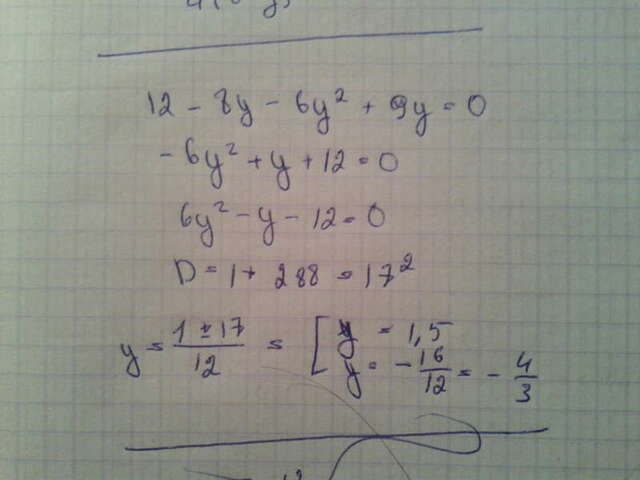 12 - 8y - 6y² + 9y = 0
- 6y² + y + 12 = 0
6y² - y - 12 = 0
D = 1 + 288 = 17²
y = (1 ± 17)/12 = [ y = 1,5
y = - 16/12 = - 4/3